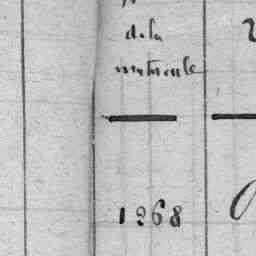 de la
matricule
1268